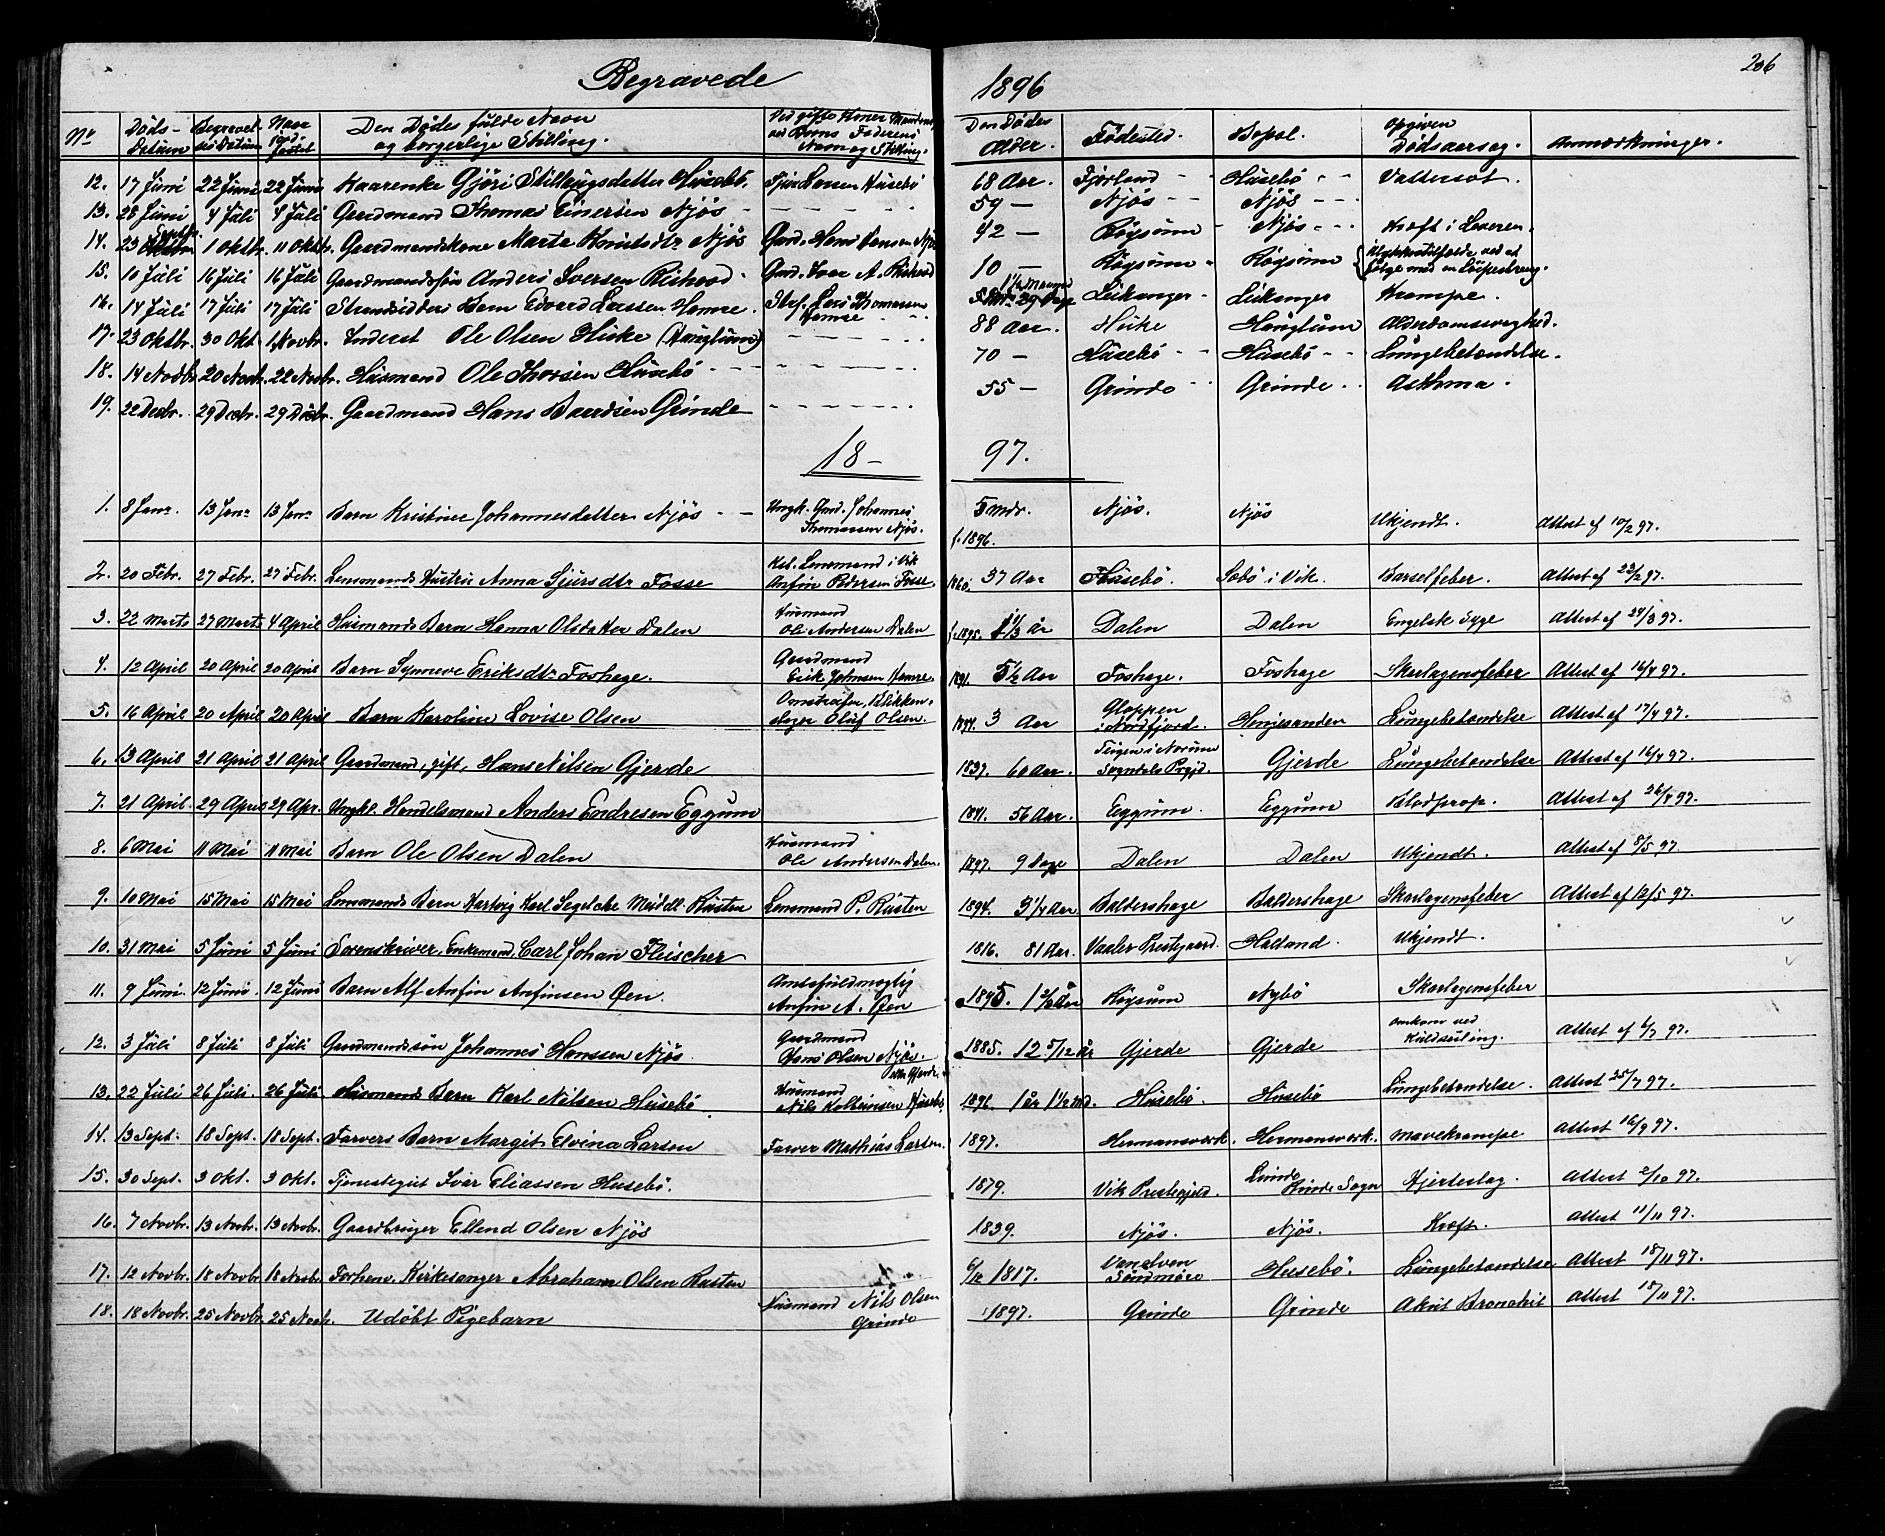 206
Begravede 1896
No Døds- Datum Begravel- ses Datum Naar Jord- fæstet Den Dødes fulde Navn og borgerlige Stilling. Ved gifte Koner Mandens, ved Børns Faderens Navn og Stilling. Den Dødes Alder. Fødested. Bopæl. opgiven Dødsaarsag. Anmærkninger.
12. 17 Juni 22 Juni 22 Juni Kaarenke Gjøri Husebø. Lassen Husebø 68 Aar. Fjærland Husebø Vattersot.
13. 28 Juni 4 Juli 4 Juli Gaardmand Thomas Einersen Njøs 59 — Njøs Njøs
14. 23 Septbr. 1 Oktbr. 11 Oktbr. Gaardmandskone Marte Knutsdtr Njøs Gard. Hans Hansen Njøs 42 — Røysum Njøs Kræft i Leveren.
15. 10 Juli 16 Juli 16 Juli Gaardmandssøn Anders Iversen Risherd Gard. Iver A. Risherd 10 — Røysum Røysum Ulykkestilfælde ved at følge med en Løipestreng.
16. 14 Juli 17 Juli 17 Juli Strandsidders Barn Edvard Larssen Hamre. Strs. Lars Thomassen Hamre 1½ Maaned Leikanger Leikanger Krampe.
17. 23 Oktbr. 30 Okt. 1 Novbr. Inderst Ole Olsen Hicke (Hauglum) 88 Aar. Hicke Hauglum Alderdomssvaghed.
18. 14 Novbr. 20 Novbr. 22 Novbr. Husmand Ole Thorsen Husebø 70 — Husebø Husebø Lungebetændelse.
19. 22 Decbr. 29 Decbr. 29 Decbr. Gaardmand Hans Baardsen Grinde 55 — Grinde Grinde Asthma.
18— 97.
1. 8 Janr. 13 Janr 13 Janr Barn Kristine Johannesdatter Njøs Ungk. Gard. Johannes Thomassen Njøs. f. 1896. 5 mdr. Njøs. Njøs Ukjendt. Attest af 10/2 97.
2. 20 Febr. 27 Febr. 27 Febr. Lensmands Hustru Anna Sjursdtr Fosse Kst. Lensmand i Vik Anfin Petersen Fosse. 1860. 37 Aar Husebø. Sæbø i Vik. Barselfeber. Attest af 23/2 97.
3. 22 Marts 27 Marts 4 April Husmands Barn Hanna Olsdatter Dalen Husmand Ole Andersen Dalen f. 1895. 1⅓ år Dalen Dalen Engelsk Syge Attest af 24/3 97.
4. 12 April 20 April 20 April Barn Synneve Eriksdtr Foshage. Gaardmand Erik Johnsen Hamre. 1891. 5½ Aar Foshage. Foshage Skarlagensfeber Attest af 16/4 97.
5. 16 April 20 April 20 April Barn Karoline Lovise Olsen Omstreifer, Blikken- slager Oluf Olsen. 1894. 3 Aar Gloppen i Nordfjord. Henjesanden Lungebetændelse Attest af 17/4 97.
6. 13 April 21 April 21 April Gaardmand, gift, Hans Nilsen Gjerde 1837. 60 Aar. Teigen i Norum Sogndals Prgjd. Gjerde Lungebetændelse Attest af 16/4 97.
7. 21 April. 29 April 29 Apr. Ungkl. Handelsmand Anders Endresen Eggum 1841. 56 Aar. Eggum. Eggum Blodprop. Attest af 26/4 97.
8. 6 Mai 11 Mai 11 Mai Barn Ole Olsen Dalen Husmand Ole Andersen Dalen. 1897. 9 Dage Dalen Dalen Ukjendt. Attest af 8/5 97.
9. 10 Mai 15 Mai 15 Mai Lensmands Barn Hartvig Karl Segelcke Meidell Rusten Lensmand P. Rusten 1894. 3¼ Aar Baldershage Baldershage Skarlagensfeber Attest af 12/5 97.
10. 31 Mai 5 Juni 5 Juni Sorenskriver, Enkemand, Carl Johan Fleischer 1816. 81 Aar. Vaaler Prestegaard. Hadland. Ukjendt.
11. 9 Juni. 12 Juni. 12 Juni Barn Alf Anfin Anfinsen Øen. Amtsfuldmægtig Anfin A. Øen 1895. Røysum Nybø Skarlagensfeber
12. 3 Juli 8 Juli 8 Juli Gaardmandssøn Johannes Hanssen Njøs Gaardmand Hans Olsen Njøs. eller Gjerde. 1885. 12 5/12 år Gjerde Gjerde omkom ved Kuldseiling. Attest af 6/7 97.
13. 22 Juli 26 Juli. 26 Juli Husmands Barn Karl Nilsen Husebø. Husmand Nils Kolbeinsen Husebø 1896. 1 år 1½ md. Husebø. Husebø Lungebetændelse. Attest 25/7 97.
14. 13 Sept. 18 Sept. 18 Sept. Farvers Barn Margit Elvina Larsen Farver Mathias Larsen. 1897. Hermansverk. Hermansverk. Mavekrampe Attest 16/9 97.
15. 30 Sept. 3 Okt. 3 Okt. Tjenestegut Iver Eliassen Husebø. 1879. Vik Prestegjeld. Sogn Hjerteslag. Attest 2/10 97.
16. 7 Novbr. 13 Novbr. 13 Novbr. Gaardbruger Ellend Olsen Njøs 1839. Njøs. Njøs. Kræft. Attest 11/11 97.
17. 12 Novbr. 18 Novbr 18 Novbr Forhenv. Kirkesanger Abraham Olsen Rusten 6/12 1817. Vanelven Søndmøre Husebø. Lungebetændelse Attest 18/11 97.
18. 18 Novbr. 25 Novbr. 25 Novb. Udøbt Pigebarn Husmand Nils Olsen Grinde 1897. Grinde Grinde Akut Bronchit Attest 18/11 97.